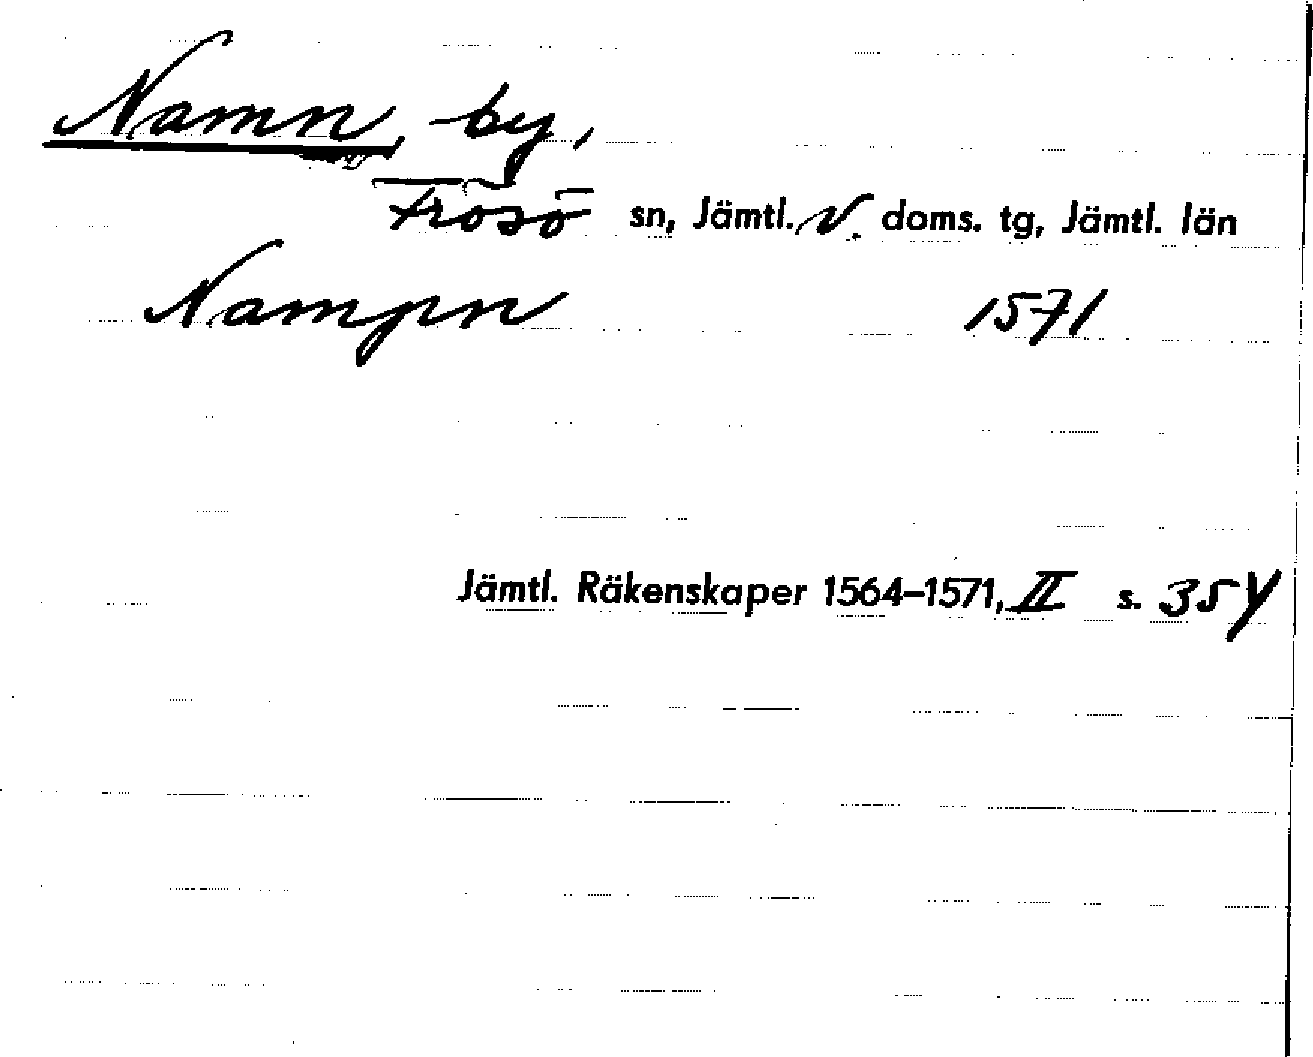 Namn, by,
Frösö sn, Jämtl. V. doms. tg, Jämtl. län
Nampn 1571
Jämtl. Räkenskaper 1564–1571, II s. 354